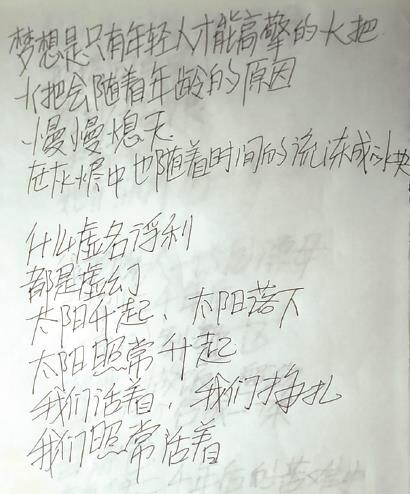 梦想是只有年轻人才能高擎的火把
火把会随着年龄的原因
慢慢熄灭
在灰烬中也随着时间的流冻成冰块
什么虚名浮利
都是虚幻
太阳升起、太阳落下
太阳照常升起
我们活着，我们挣扎
我们照常活着